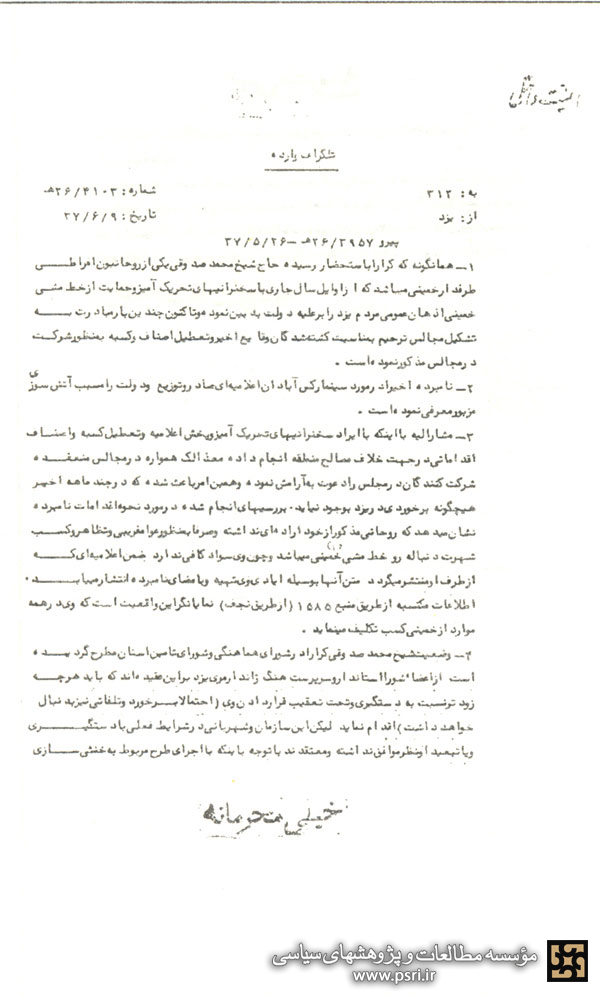 تلگراف وارده
به : ۳۱۲
شماره : ۲۶/۴۱۰۳ هـ
از : یزد
تاریخ : ۳۷/۶/۹
پیرو ۲۶/۳۹۵۷ هـ – ۳۷/۵/۲۶
۱ــ همانگونه که کرارا باستحضار رسیده حاج شیخ محمد صدوقی یکی از روحانیون افراطی
طرفدار خمینی میباشد که از اوایل سال جاری با سخنرانیهای تحریک آمیز و حمایت از خط مشی
خمینی اذهان عمومی مردم یزد را برعلیه دولت بد بین نموده و تاکنون چندین بار مبادرت به
تشکیل مجالس ترحیم بمناسبت کشته شدگان وقایع اخیر و تعطیل اصناف و کسبه بمنظور شرکت
در مجالس مذکور نموده است .
۲ــ نامبرده اخیرا در مورد سینما رکس آبادان اعلامیه ای صادر و توزیع و دولت را مسبب آتش سوزی
مزبور معرفی نموده است .
۳ــ مشارالیه با اینکه با ایراد سخنرانیهای تحریک آمیز و پخش اعلامیه و تعطیل کسبه و اصناف
اقداماتی در جهت خلاف مصالح منطقه انجام داده معذالک همواره در مجالس منعقده
شرکت کنندگان در مجلس را دعوت به آرامش نموده و همین امر باعث شده که در چند ماهه اخیر
هیچگونه برخوردی در یزد بوجود نیاید . بررسیهای انجام شده در مورد نحوه اقدامات نامبرده
نشان میدهد که روحانی مذکور از خود اراده ای نداشته و صرفا بمنظور عوامفریبی و تظاهر و کسب
شهرت دنباله رو خط مشی خمینی میباشد و چون وی سواد کافی ندارد ضمن اعلامیه ای که
از طرف او منتشر میگردد متن آنها بوسیله ایادی وی تهیه و با امضای نامبرده انتشار میابد .
اطلاعات مکتسبه از طریق منبع ۱۵۸۵ (از طریق نجف) نمایانگر این واقعیت است که وی در همه
موارد از خمینی کسب تکلیف مینماید .
۴ــ وضعیت شیخ محمد صدوقی کرارا در شورای هماهنگی و شورای تامین استان مطرح گردیده
است از اعضا شورا استاندار و سرپرست هنگ ژاندارمری یزد براین عقیده اند که باید هرچه
زودتر نسبت به دستگیری و تحت تعقیب قراردادن وی (احتمالا برخورد و تلفاتی نیز بدنبال
خواهد داشت) اقدام نماید لیکن این سازمان و شهربانی در شرایط فعلی با دستگیری
و یا تبعید او نظر موافق نداشته و معتقدند با توجه باینکه با اجرای طرح مربوط به خنثی سازی
خیلی محرمانه
مؤسسه مطالعات و پژوهشهای سیاسی
www.psri.ir